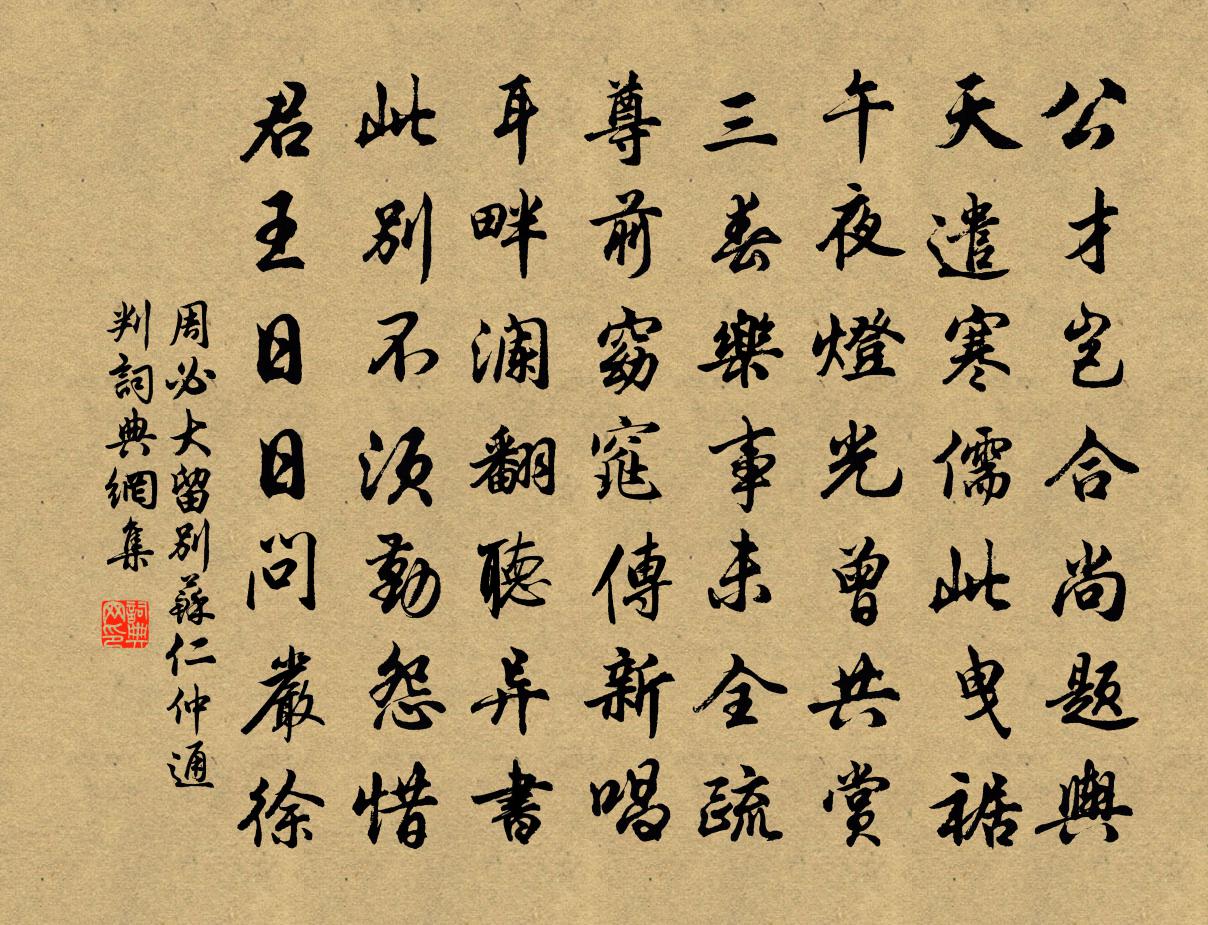 公才岂合尚题舆
天遣寒儒此曳裾
午夜燈光曾共赏
三春樂事未全疏
尊前窈窕傳新唱
耳畔澜翻聽异書
此别不须勤怨惜
君王日日問嚴徐
周必大留别蘇仁仲通
判詞典網集
詞典网印